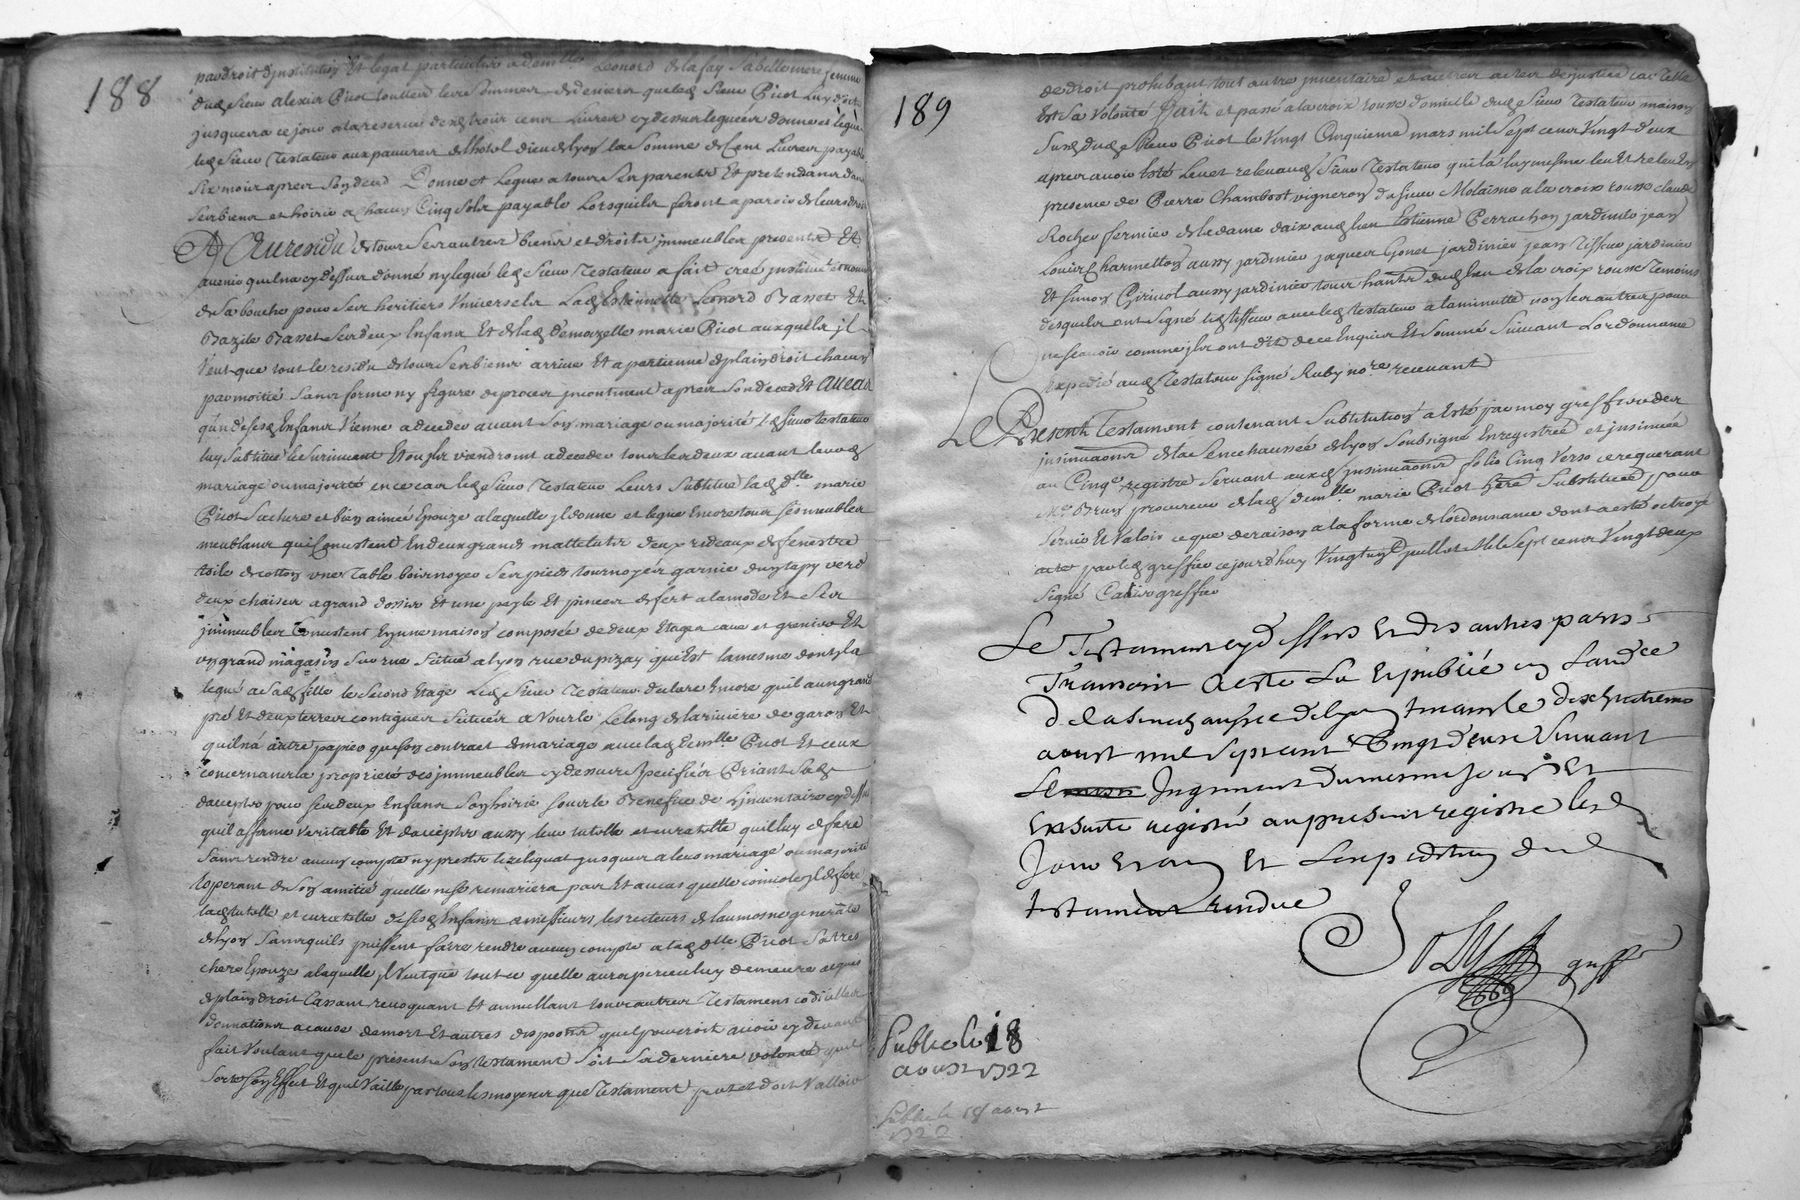 188
par droit d'institution Et legat particulier a demlle Leonord delafay sa belle mere femme
dud Sieur alexis Picot toutes les Sommes de deniers que led Sieur Picot luy doit
jusques a ce jour a la reserve de trois cens Livres cy dessus legueés donne et legue
led Sieur Testateur aux pauvres de l'hotel dieu de lyon la Somme de Cent Livres payable
Six mois apres Son deced Donne et Legue a tous Ses parents Et pretendants droit
Ses biens et hoirie a chacun Cinq Sols payable Lorsquils feront aparoir de leurs droits
Au residu de tous Ses autres biens et droits jmmeubles presents Et
avenir quil na cy dessus donné ny legué led Sieur Testateur a fait creé jnstitué et nommé
de Sa bouche pour Ses heritiers Universels Lad Estiennette Leonord Basset Et
Bazile Basset Ses deux Enfans Et de lad demoizelle marie Picot auxquels jl
Veut que tout le residu de tous Ses biens arrive Et apartienne de plain droit chacun
par moitié Sans forme ny figure de proces jncontinent apres Son deced Et Au cas
qu'un desd Enfans Vienne a deceder avant Son mariage ou majorité led Sieur testateur
luy Substitue le Survivant Et ou jls viendroint a deceder tous les deux avant leurd
mariage ou majorité en ce cas led Sieur Testateur Leurs Substitue lad dlle marie
Picot Sa chere et bien aimée Epouze a laquelle jl donne et legue Encore tous Ses meubles
meublans qui Consistent En deux grands mattelats deux rideaux de fenestre
toile de cotton une Table bois noyer Ses pieds tournoyés garnie d'un tapy verd
deux chaises a grand dossier et une pesle Et pinces de fert a la mode Et Ses
jmmeubles Consistent En une maison composée de deux Etages cave et grenier Et
un grand magasin Sur rue Scitué a lyon rue du pizay qui Est la mesme dont jl a
legué a Sad fille le Second Etage Led Sieur Testateur declare Encore quil a un grand
pré Et deux terres contigues Scitués a Vourle Le long de la riviere de garon Et
quil na autre papier que Son contract de mariage avec lad demlle Picot Et ceux
concernans la proprieté des jmmeubles cy dessus Specifiés Priant Sad
d'accepter pour Ses deux Enfans Son hoirie Sous le Benefice de L'jnventaire cy dessus
quil afferme veritable Et d'accepter aussy leur tutelle et curatelle quil luy defere
Sans rendre aucun compte ny prester le reliquat jusques a leurs mariage ou majorité
Esperant de Son amitié quelle ne Se remariera pas Et au cas quelle convole jl defere
lad tutelle et curatelle desd Enfans a messieurs les recteurs de l'aumosne generalle
de lyon Sans quils puissent faire rendre aucun compte a lad dlle Picot Sa tres
chere Epouze a laquelle jl Veut que tout ce quelle aura perceu luy demeure acquis
de plain droit Cassant revoquant Et annullant tous autres Testamens codicilles
donnations a cause de mort Et autres disponns quel pouroit avoir cy devant
fait Voulant que le present Son testament Soit Sa derniere volonté quil
Sorte Son Effet Et que Vaille par tous les moyens que Testament peut et doit Valloir
189
de droit prohibant tout autre jnventaire et autres actes de justice car Telle
Est Sa Volonté Fait et passé a la croix rousse domicille dud Sieur Testateur maison
Sieur Picot le Vingt Cinquieme mars mil Sept cens Vingt deux
apres avoir Esté Leu et releu aud Sieur Testateur qui l'a luy mesme leu Et releu En
presence de Pierre Chambost vigneron du Sieur Molaine a la croix rousse claude
Rocher fermier de la dame daix aud lieu Estienne Perrachon jardinier jean
Louis Charmetton aussy jardinier jaques Gonet jardinier jean Tisseur jardinier
Et Simon Girinot aussy jardinier tous habtants dud lieu de la croix rousse Temoins
desquels ont Signé led tisseur avec led testateur a la minutte non les autres pour
ne Scavoir comme jls ont dit de ce Enquis Et Sommé Suivant Lordonnance
Expedié aud Testateur Signé Ruby nore recevant
Le Present Testament contenant Substitution a Esté par moy greffier des
jnsinuaons de la Senechaussée de lyon Soubsigné Enregistré et jnsinué
au Cinqe registre Servant auxd jnsinuaons folio Cinq Verso ce requerant
Me Brun procureur de lad demlle marie Picot here Substituée pour
Servir Et Valoir ce que de raison a la forme de lordonnance dont a esté octroyé
acte par led greffier ce jourdhuy Vingt un juillet Mil Sept cens Vingt deux
Signé Cabir greffier
Le Testament cy dessus Et des autres parts
Transcrit A esté Lu Et publié en Laudce
de la Senechaussée de lyon tenant le dixhuitieme
aoust mil Sept cent Vingt deux Suivant
Le Jugement du mesme jour Et
Ensuite registré au present registre lesd
Jour Et an Et Lexpedition dud
testament rendue
greffr
Publié le 18
aoust 1722
Publié le 18 aoust
1722